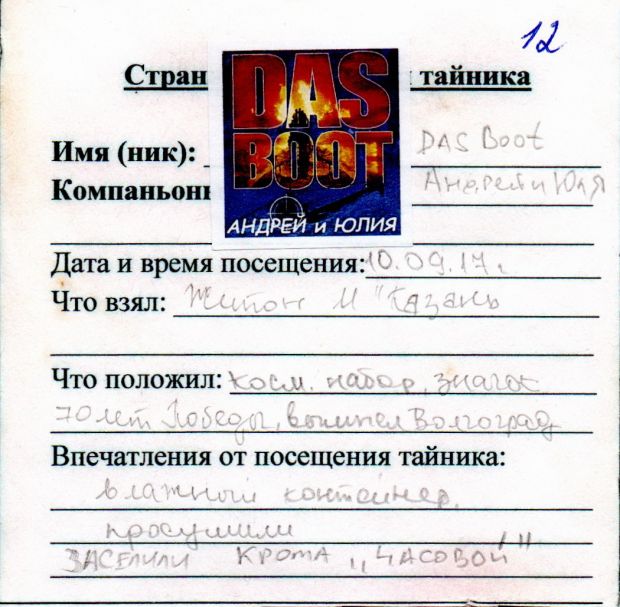 12
Стран тайника
DAS
BOOT
АНДРЕЙ и ЮЛИЯ
Имя (ник): DAS Boot
Компаньоны Андрей и Юля
Дата и время посещения: 10.09.17г
Что взял: Жетон М "Казань
Что положил: косм. набор, значок
70 лет Победы, вымпел Волгоград
Впечатления от посещения тайника:
влажный контейнер,
просушили
ЗАСЕЛИЛИ КРОТА „ЧАСОВОЙ"